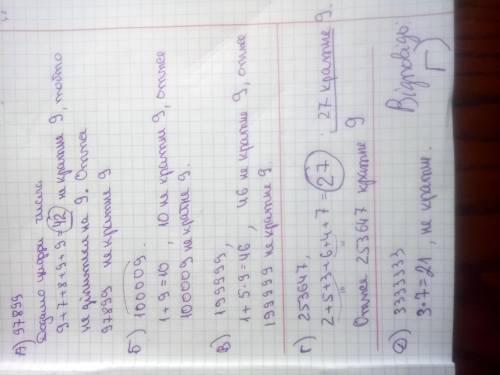 А) 97899
Додамо цифри числа
9+7+8+9+9=42 не кратне 9, тобто
не ділиться на 9. Отже
97899 не кратне 9
Б) 100009.
1+9=10, 10 не кратне 9, отже
100009 не кратне 9.
В) 199999,
1+5·9=46, 46 не кратне 9, отже
199999 не кратне 9.
Г) 253647,
2+5+3+6+4+7=27. 27 кратне 9.
Отже 253647 кратне 9
Д) 3333333
3·7=21, не кратн.
Відповідь:
Г)